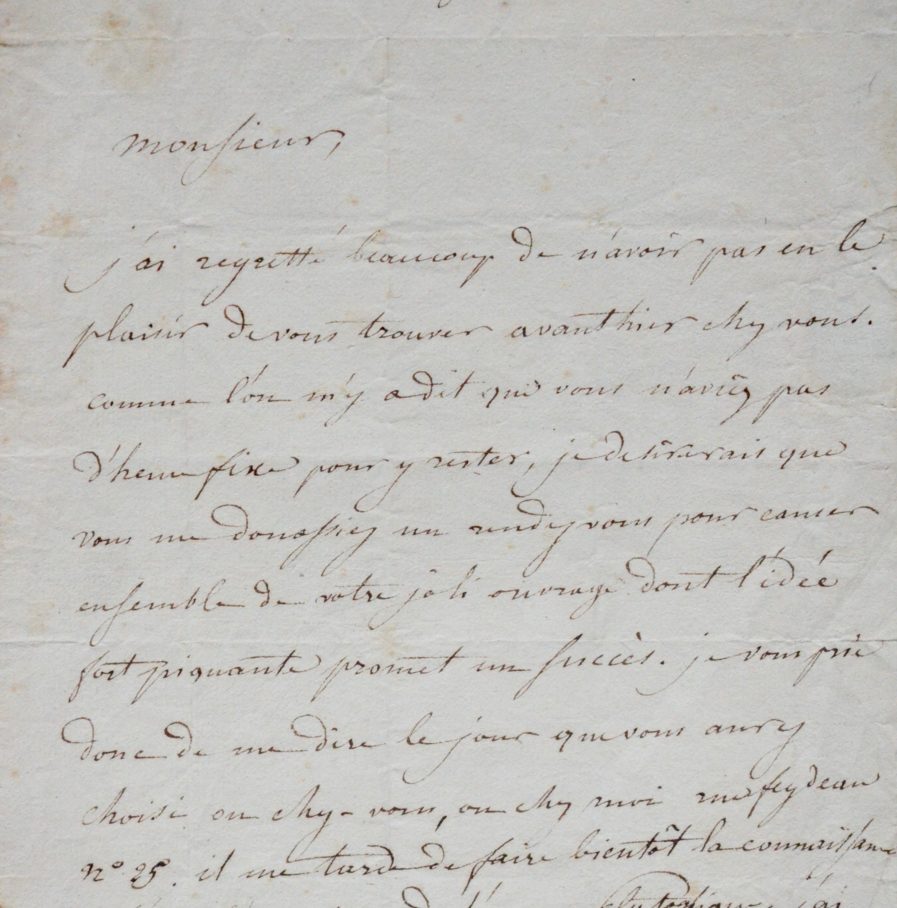 monsieur,
j'ai regretté beaucoup de n'avoir pas eu le
plaisir de vous trouver avanthier chez vous.
comme l'on m'y a dit que vous n'aviez pas
d'heure fixe pour y rester, je desirerais que
vous me donassiez un rendezvous pour causer
ensemble de votre joli ouvrage dont l'idée
fort piquante promet un succès. je vous prie
donc de me dire le jour que vous aurez
choisi ou chez-vous, ou chez moi rue feydeau
n° 25. il me tarde de faire bientôt la connaissance
de j'ai